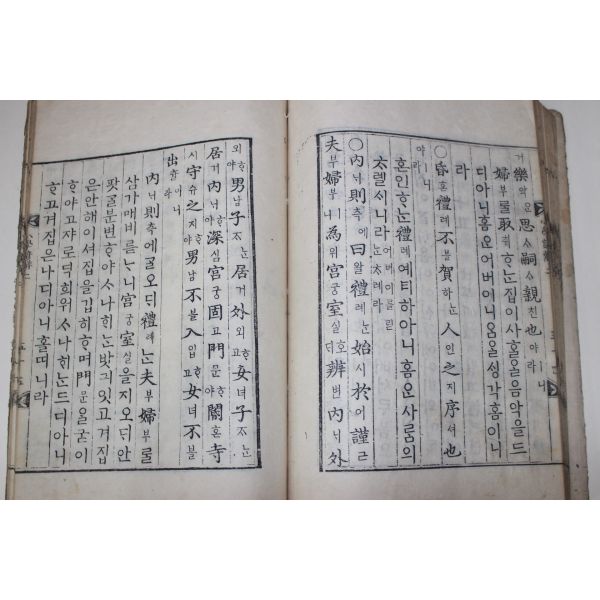 거樂악은思ᄉᆞ嗣ᄉᆞ親친也야ㅣ니라
婦부를取취ᄒᆞᄂᆞᆫ집이사ᄒᆞᆯ을음악을드
디아니홈ᄋᆞᆫ어버이니움을ᄉᆡᆼ각홈이니
라
○昏혼禮례不블賀하ᄂᆞᆫ人인之지序셔也
야ㅣ니라
혼인ᄒᆞᄂᆞᆫ禮례예티하아니홈ᄋᆞᆫ사ᄅᆞᆷ의
ᄎᆞ렐시니라
○內ᄂᆡ則측에曰왈禮례ᄂᆞᆫ始시於어謹근
夫부婦부ㅣ니爲위宮궁室실호ᄃᆡ辨변內ᄂᆡ外
외ᄒᆞ야男남子ᄌᆞᄂᆞᆫ居거外외ᄒᆞ고女녀子ᄌᆞᄂᆞᆫ
居거內ᄂᆡᄒᆞ야深심宮궁固고門문ᄒᆞ야閽혼寺
시守슈之지ᄒᆞ야男남不블入입ᄒᆞ고女녀不블
出츌이니라
內ᄂᆡ則측에ᄀᆞᆯ오ᄃᆡ禮례ᄂᆞᆫ夫부婦부를
삼가매비르ᄂᆞ니宮궁室실을지오ᄃᆡ안
팟글분변ᄒᆞ야ᄉᆞ나ᄒᆡᄂᆞᆫ밧긔잇고겨집
은안해이셔집을깁히ᄒᆞ며門문을굳이
ᄒᆞ야고쟈로딕희워ᄉᆞ나ᄒᆡᄂᆞᆫ드디아니
ᄒᆞ고겨집은나디아니홀띠니라